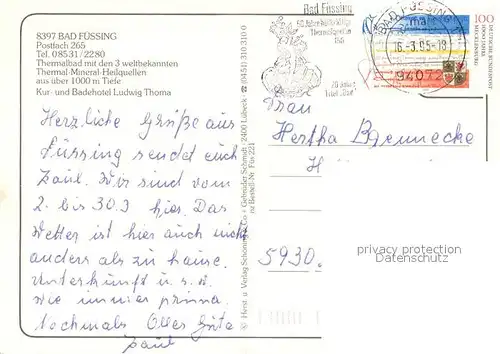 8397 BAD FÜSSING
Postfach 265
Tel. 08531/2280
Thermalbad mit den 3 weltbekannten
Thermal-Mineral-Heilquellen
aus über 1000 m Tiefe
Kur- und Badehotel Ludwig Thoma
Herzliche Grüße aus
Füssing sendet euch
Paul. Wir sind vom
2. bis 30.3 hier. Das
Wetter ist hier auch nicht
anders als zu hause.
Unterkunft u. s. w.
wie immer prima.
Nochmals Alles Gute
Paul
Herst. u. Verlag Schöning & Co + Gebrüder Schmidt · 2400 Lübeck · ☎ (0451) 310 310
Bestell-Nr. Füs 221
Bad Füssing
50 Jahre
BAD FÜSSING 1
16.-3.95-18
94072
100
DEUTSCHE BUNDESPOST
1000 JAHRE
MECKLENBURG
Frau
Hertha
5930.
privacy protection
DATENSCHUTZ